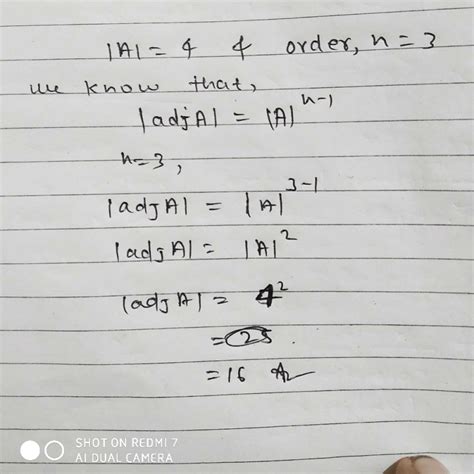 |A| = 4 & order, n = 3
We know that,
|adjA| = |A|^{n-1}
n=3,
|adjA| = |A|^{3-1}
|adjA| = |A|^2
|adjA| = 4^2
= 25
= 16 Ans
SHOT ON REDMI 7
AI DUAL CAMERA